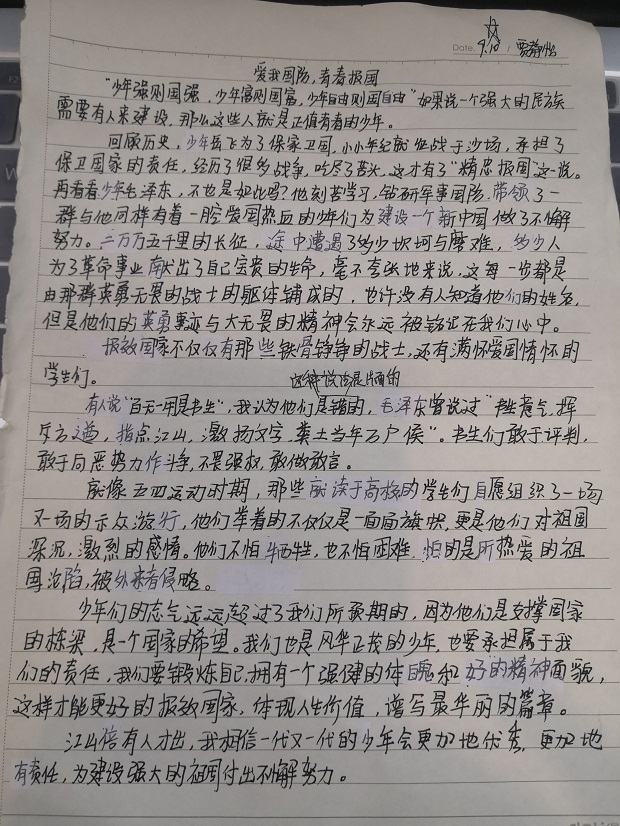 Date. 9.10 / 贾静怡
爱我国防，青春报国
“少年强则国强，少年富则国富，少年自由则国自由”如果说一个强大的民族
需要有人来建设，那么这些人就是正值青春的少年。
回顾历史，少年岳飞为了保家卫国，小小年纪就征战于沙场，承担了
保卫国家的责任，经历了很多战争，吃尽了苦头，这才有了“精忠报国”这一说。
再看看少年毛泽东，不也是如此吗？他刻苦学习，钻研军事国防，带领了一
群与他同样有着一腔爱国热血的少年们为建设一个新中国做了不懈
努力。二万五千里的长征，途中遭遇了多少坎坷与磨难，多少人
为了革命事业献出了自己宝贵的生命，毫不夸张地来说，这每一步都是
由那群英勇无畏的战士的躯体铺成的，也许没有人知道他们的姓名，
但是他们的英勇事迹与大无畏的精神会永远被铭记在我们心中。
报效国家不仅仅有那些铁骨铮铮的战士，还有满怀爱国情怀的
学生们。
这种说法是片面的
有人说“百无一用是书生”，我认为他们是错的，毛泽东曾说过“书生意气，挥
斥方遒，指点江山，激扬文字，粪土当年万户侯”。书生们敢于评判，
敢于向恶势力作斗争，不畏强权，敢做敢言。
就像五四运动时期，那些就读于高校的学生们自愿组织了一场
又一场的示众游行，他们举着的不仅仅是一面面旗帜，更是他们对祖国
深沉，激烈的感情。他们不怕牺牲，也不怕困难，怕的是所热爱的祖
国沦陷，被外来者侵略。
少年们的志气远远超过了我们所预期的，因为他们是支撑国家
的栋梁，是一个国家的希望。我们也是风华正茂的少年，也要承担属于我
们的责任，我们要锻炼自己，拥有一个强健的体魄和好的精神面貌，
这样才能更好的报效国家，体现人生价值，谱写最华丽的篇章。
江山倍有人才出，我相信一代又一代的少年会更加地优秀，更加地
有责任，为建设强大的祖国付出不懈努力。